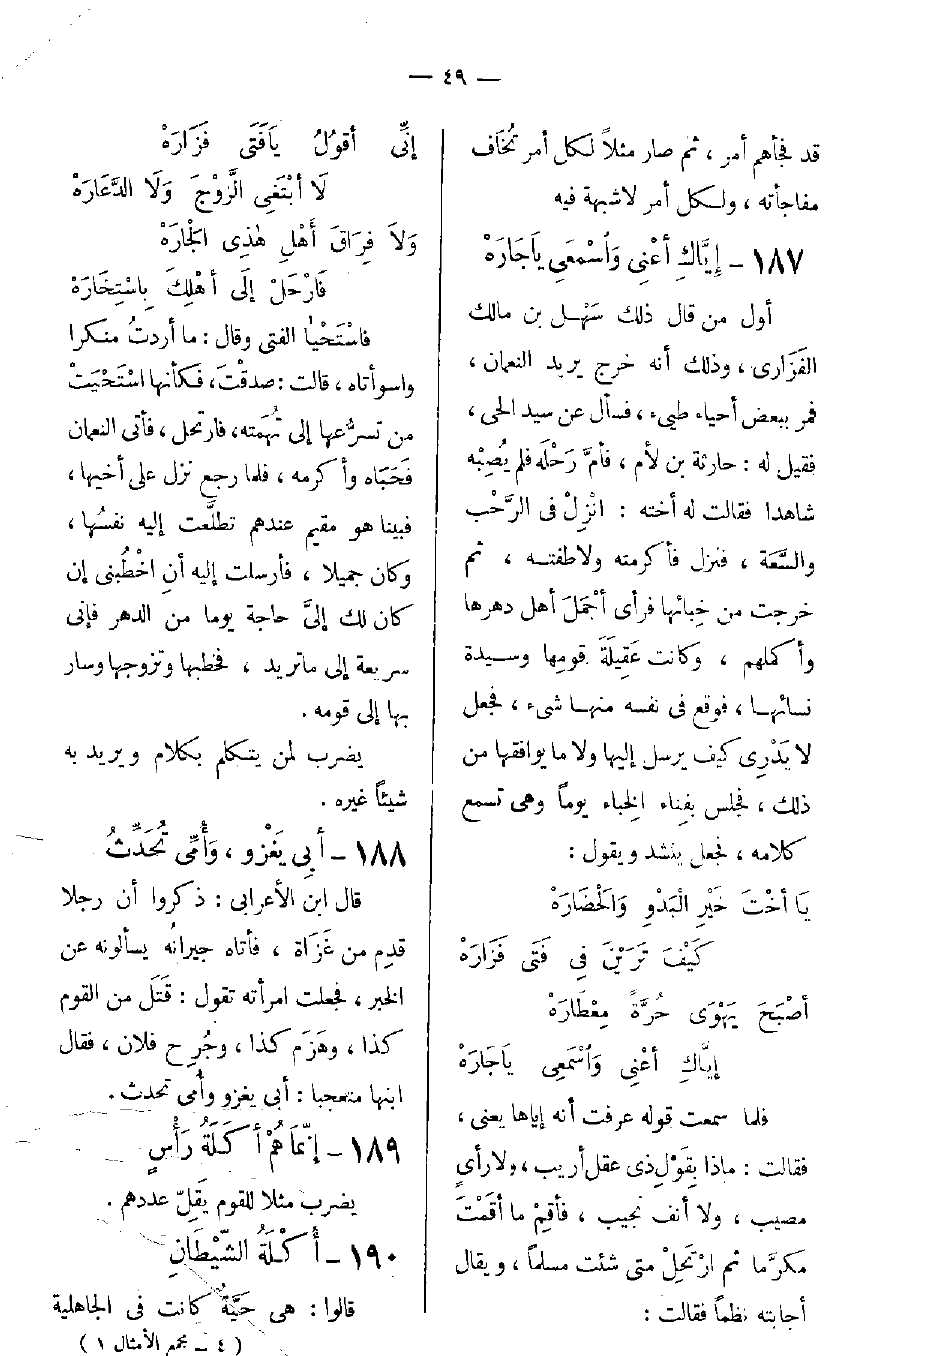 — ٤٩ —
قد فجأهم أمر ، ثم صار مثلاً لكل أمر تُخَاف
مفاجأته ، ولكل أمر لاشبهة فيه
١٨٧ – إِيَّاكِ أَعْنِى وَاسْمَعِى يَاجَارَهْ
أول من قال ذلك سَهْل بن مالك
الفَزارى ، وذلك أنه خرج يريد النعمان ،
فمر ببعض أحياء طيىء ، فسأل عن سيد الحى ،
فقيل له : حارثة بن لأم ، فأمَّ رَحْلَه فلم يُصِبْه
شاهدا فقالت له أخته : انْزِلْ فى الرَّحْب
والسَّعة ، فنزل فأكرمته ولاطفته ، ثم
خرجت من خِبائها فرأى أجْمَلَ أهل دهرها
وأكملهم ، وكانت عَقِيلَةَ قومها وسيدة
نسائها ، فوقع فى نفسه منها شىء ، فجعل
لا يَدْرِى كيف يرسل إليها ولا ما يوافقها من
ذلك ، فجلس بفِناء الخِباء يوماً وهى تسمع
كلامه ، فجعل ينشد ويقول :
يَا أخْتَ خَيْرِ الْبَدْوِ وَالْحَضَارَهْ
كَيْفَ تَرَيْنَ فِى فَتَى فَزَارَهْ
أصْبَحَ يَهْوَى حُرَّةً مِعْطَارَهْ
إِيَّاكِ أعْنِى وَاسْمَعِى يَاجَارَهْ
فلما سمعت قوله عرفت أنه إياها يعنى ،
فقالت : ماذا بِقَوْلِ ذى عقل أريب ، ولا رأىٍ
مصيب ، ولا أنف نجيب ، فأقِمْ ما أقَمْتَ
مكرَّما ثم ارْتَحِلْ متى شئت مسلماً ، ويقال
أجابته نظماً فقالت :
إِنِّى أقُولُ يَافَتَى فَزَارَهْ
لَا أبْتَغِى الزَّوْجَ وَلَا الدَّعَارَهْ
وَلاَ فِرَاقَ أَهْلِ هٰذِى الْجَارَهْ
فَارْحَلْ إلَى أهْلِكَ بِاسْتِخَارَهْ
فاسْتَحْيَا الفتى وقال : ما أردتُ منكرا
واسوأتاه ، قالت : صدقْتَ ، فكأنها اسْتَحْيَتْ
من تسرُّعها إلى تُهَمته، فارتحل ، فأتى النعمان
فَحَبَاه وأكرمه ، فلما رجع نزل على أخيها ،
فبينا هو مقيم عندهم تطلَّعت إليه نفسُها ،
وكان جميلا ، فأرسلت إليه أنِ اخْطُبنى إن
كان لك إلىَّ حاجة يوما من الدهر فإنى
سريعة إلى ماتريد ، فخطبها وتزوجها وسار
بها إلى قومه .
يضرب لمن يتكلم بكلام ويريد به
شيئاً غيره .
١٨٨ – أَبِى يَغْزُو ، وَأُمِّى تُحَدِّثُ
قال ابن الأعرابى : ذكروا أن رجلا
قدِم من غَزَاة ، فأتاه جيرانُه يسألونه عن
الخبر ، فجعلت امرأته تقول : قَتَلَ من القوم
كذا ، وهَزَم كذا ، وجُرِح فلان ، فقال
ابنها متعجبا : أبى يغزو وأمى تحدث .
١٨٩ – إِنَّمَا هُمْ أَكَلَةُ رَأْسٍ
يضرب مثلا للقوم يَقِلّ عددهم .
١٩٠ – أَكْلَةُ الشَّيْطَانِ
قالوا : هى حَيَّةٌ كانت فى الجاهلية
( ٤ – مجمع الأمثال ١ )